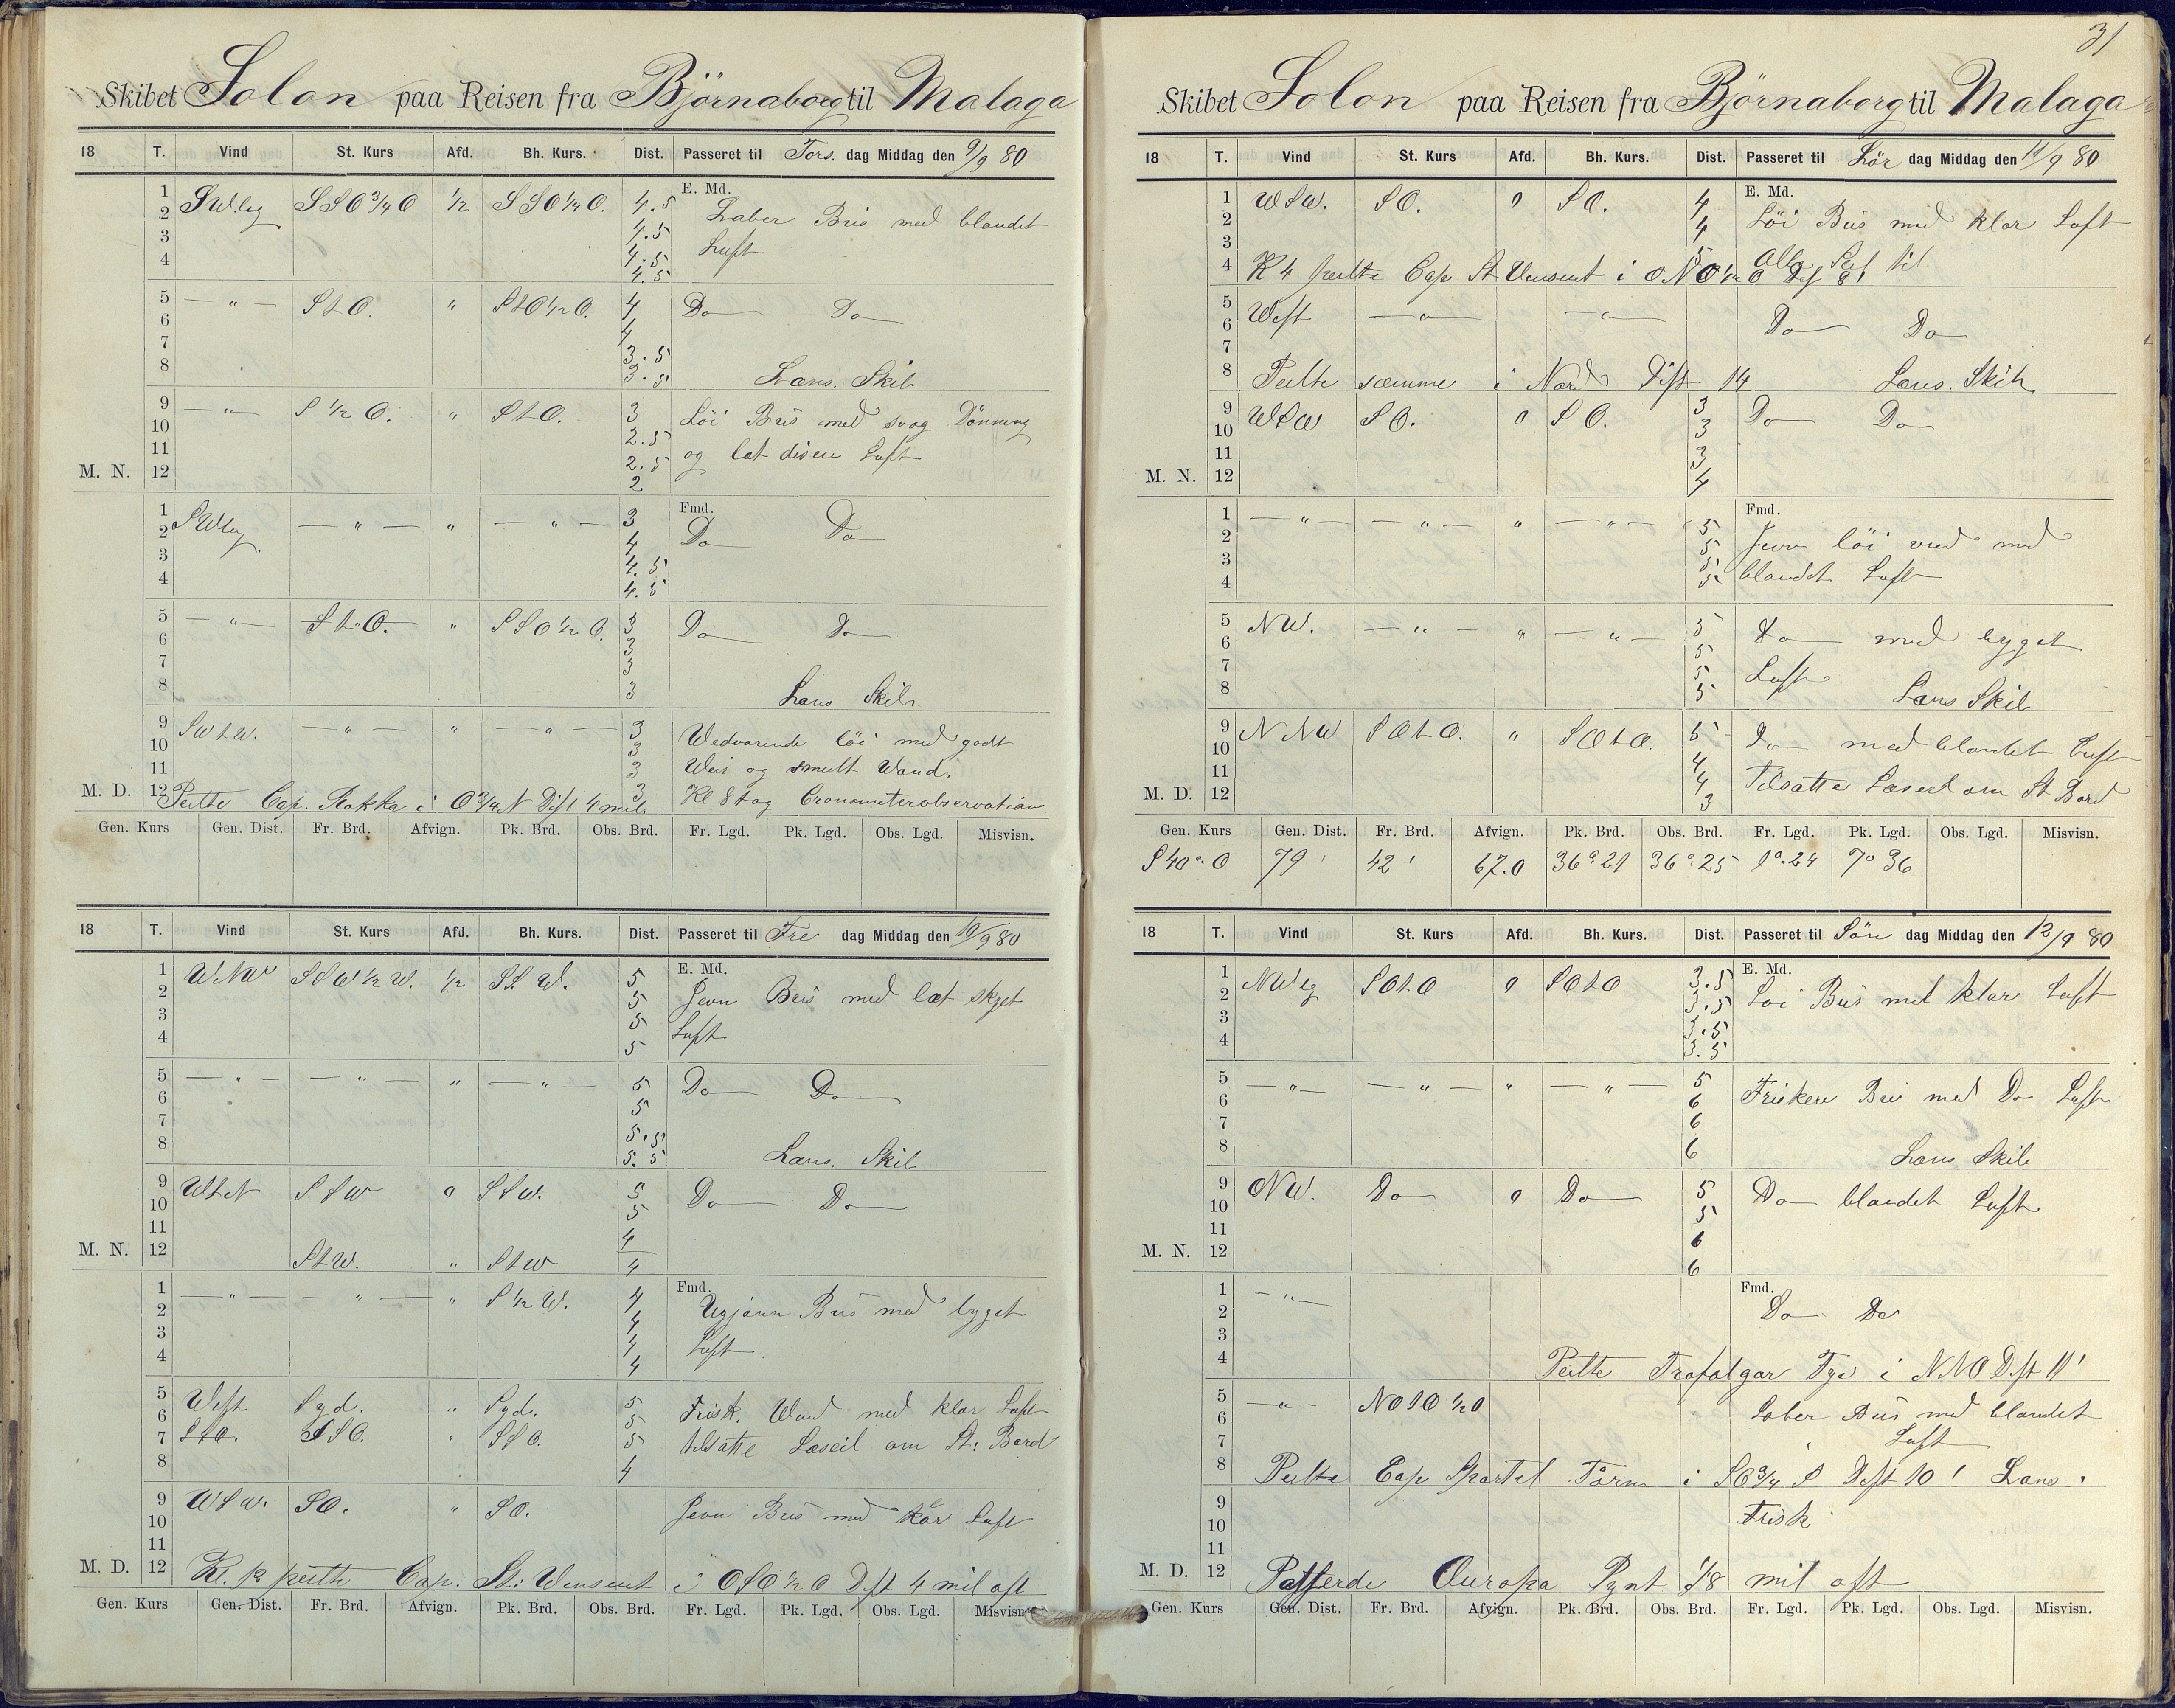 Skibet Solon paa Reisen fra Björnaborg til Malaga
18 T. Vind St. Kurs Afd. Bh. Kurs. Dist. Passeret til Tors. dag Middag den 9/9 80
1 SWlig SSO 3/4 O 1/2 SSO 1/4 O. 4.5 E. Md.
2 4.5 Laber Bris med blandet
3 4.5 Luft
4 4.5
5 — " — StO. " StO 1/2 O. 4 Do Do
6 4
7 3.5
8 3.5 Læns. Skib
9 — " — S 1/2 O. " StO. 3 Löi Bris med svag Dönning
10 2.5
11 2.5 og let disen Luft
M. N. 12 2
1 SWlig — " — " — " — 3 Fmd.
2 4 Do Do
3 4.5
4 4.5
5 — " — StO. " SSO 1/2 O. 3 Do Do
6 3
7 3
8 3 Læns Skib
9 SWtW. — " — " — " — 3 Vedvarende löi med godt
10 3
11 3 Veir og smult Vand.
M. D. 12 Peilte Cap. Rokka i O 3/4 N Dist 4 mil 3 Kl 8 tog Cronometerobservation
Gen. Kurs Gen. Dist. Fr. Brd. Afvign. Pk. Brd. Obs. Brd. Fr. Lgd. Pk. Lgd. Obs. Lgd. Misvisn.
18 T. Vind St. Kurs Afd. Bh. Kurs. Dist. Passeret til Fre dag Middag den 10/9 80
1 WNW SSW 1/2 W. 1/2 StW. 5 E. Md.
2 5 Jevn Bris med let skyet
3 5 Luft
4 5
5 — " — — " — " — " — 5 Do Do
6 5
7 5.5
8 5.5 Læns. Skib
9 WtN SSW 0 SSW. 5 Do Do
10 5
11 4
M. N. 12 StW. " StW 4
1 — " — — " — " S 1/2 W. 4 Fmd.
2 4 Ugjævn Bris med byget
3 4 Luft
4 4
5 West Syd. " Syd. 5 Frisk. Vind med klar Luft
6 5
7 StO. SSO. " SSO. 5 tilsatte Læseil om St: Bord
8 4
9 WSW. SO. " SO. Jevn Bris med klar Luft
10
11
M. D. 12 Kl. 12 peilte Cap. St: Vensent i OSO 1/2 O Dist 4 mil aft
Gen. Kurs Gen. Dist. Fr. Brd. Afvign. Pk. Brd. Obs. Brd. Fr. Lgd. Pk. Lgd. Obs. Lgd. Misvisn.
31
Skibet Solon paa Reisen fra Björnaborg til Malaga
18 T. Vind St. Kurs Afd. Bh. Kurs. Dist. Passeret til Lör dag Middag den 11/9 80
1 WSW. SO. 0 SO. 4 E. Md.
2 4 Löi Bris med klar Luft
3 5 Alle Seil til
4 Kl 4 peilte Cap St Vensent i ONO 1/2 O Dist 8'
5 West — " — — " —
6 Do Do
7
8 Peilte samme i Nord Dist 14 Læns. Skib
9 WSW SO. 0 SO. 3 Do Do
10 3
11 3
M. N. 12 4
1 — " — — " — " — " — 5 Fmd.
2 5 Jevn löi vind med
3 5
4 5 blandet Luft
5 NW. — " — " — " — 5 Do med byget
6 5
7 5 Luft
8 5 Læns Skib
9 NNW SOtO. " SOtO. 5 Do med blandet Luft
10
11 4 Tilsatte Læseil om St Bord
4
M. D. 12 3
Gen. Kurs Gen. Dist. Fr. Brd. Afvign. Pk. Brd. Obs. Brd. Fr. Lgd. Pk. Lgd. Obs. Lgd. Misvisn.
S 40° O 79' 42' 67.0 36° 21 36° 25 1° 24 7° 36
18 T. Vind St. Kurs Afd. Bh. Kurs. Dist. Passeret til Sön dag Middag den 12/9 80
1 NWlig SOtO 0 SOtO 3.5 E. Md.
2 3.5 Löi Bris med klar Luft
3 3.5
4 3.5
5 — " — — " — " — " — 5 Friskere Bris med Do Luft
6 6
7 6
8 6 Læns Skib
9 NW. Do 0 Do 5 Do blandet Luft
10 5
11 6
M. N. 12 6
1 — " — Fmd.
2 Do Do
3
4 Peilte Trafalgar Fyr i NNO Dist 11'
5 — " — Laber Bris med blandet
6
7 Luft
8 Peilte Cap Spartel Tårn i SO 3/4 S Dist 10' Læns.
9 Frisk
10
11
M. D. 12 Passerde Europa Pynt 1/8 mil aft
Gen. Kurs Gen. Dist. Fr. Brd. Afvign. Pk. Brd. Obs. Brd. Fr. Lgd. Pk. Lgd. Obs. Lgd. Misvisn.